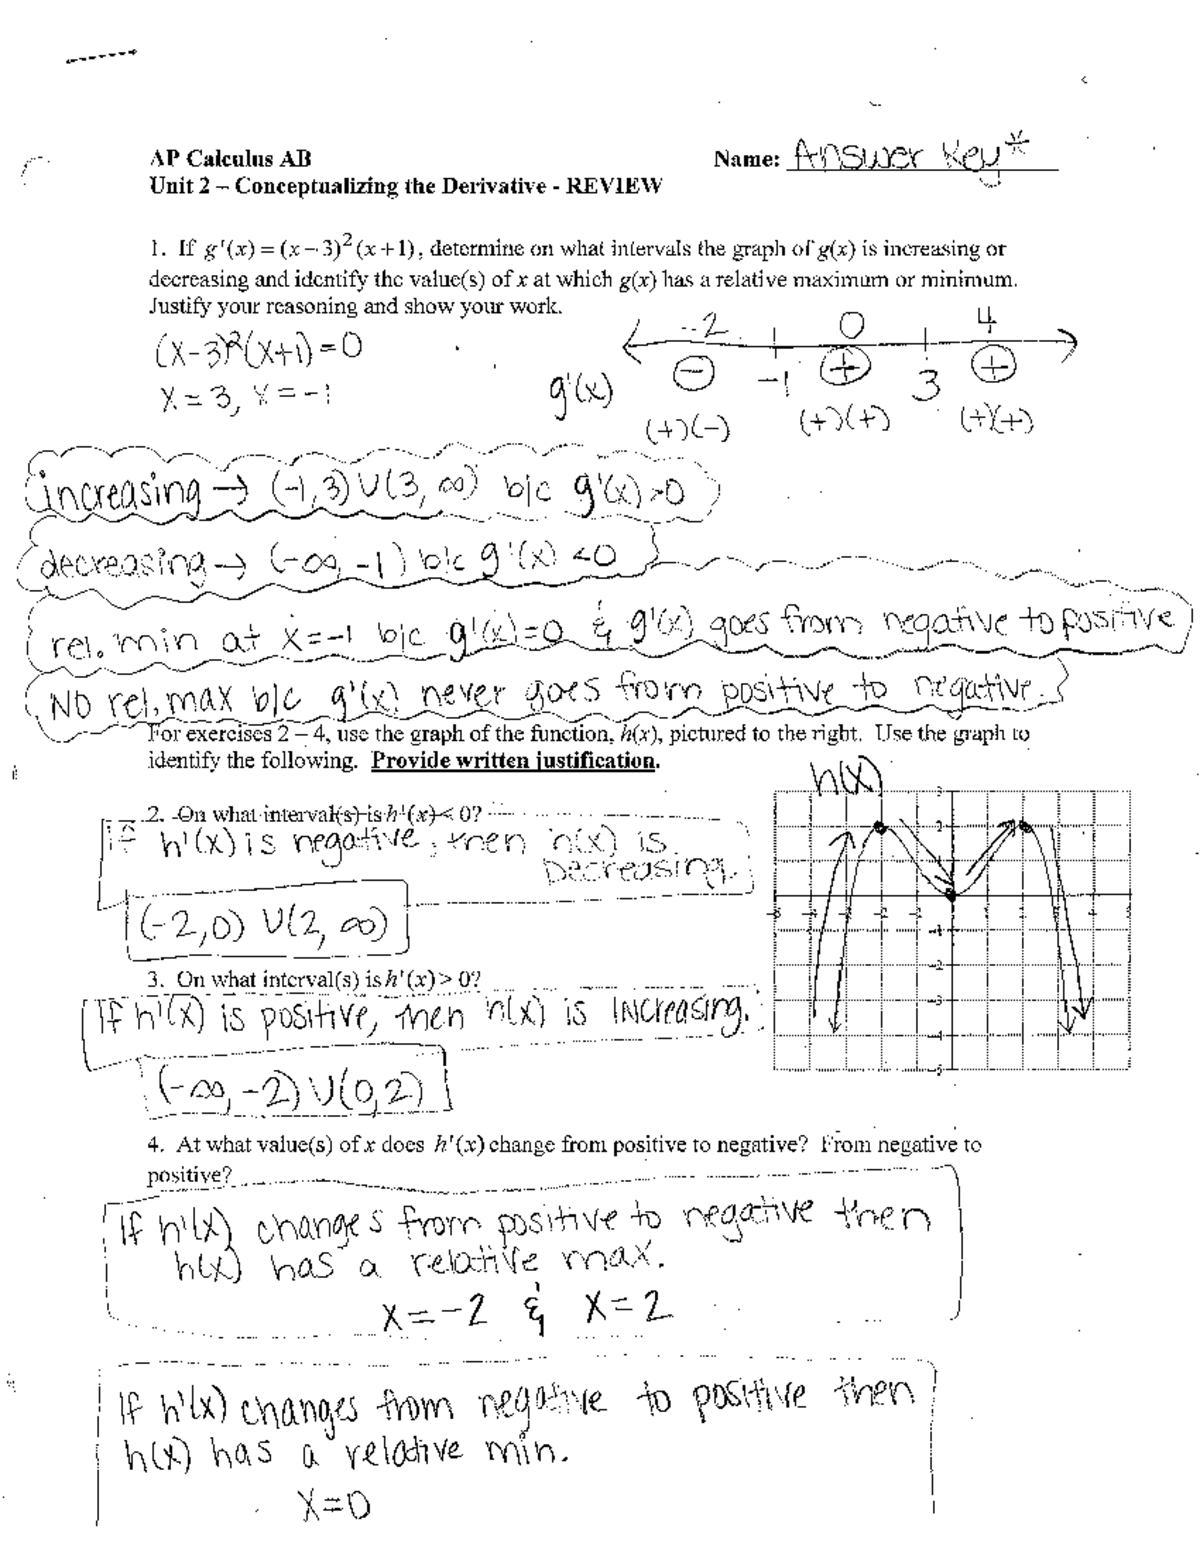 AP Calculus AB
Name: Answer Key*
Unit 2 – Conceptualizing the Derivative - REVIEW
1. If g'(x) = (x – 3)²(x + 1), determine on what intervals the graph of g(x) is increasing or
decreasing and identify the value(s) of x at which g(x) has a relative maximum or minimum.
Justify your reasoning and show your work.
(x-3)²(x+1)=0
x=3, x=-1
-2 0 4
g'(x) - -1 + 3 +
(+)(-) (+)(+) (+)(+)
increasing → (-1,3)∪(3,∞) b/c g'(x)>0
decreasing → (-∞,-1) b/c g'(x)<0
rel. min at x=-1 b/c g'(x)=0 & g'(x) goes from negative to positive
NO rel. max b/c g'(x) never goes from positive to negative.
For exercises 2 – 4, use the graph of the function, h(x), pictured to the right. Use the graph to
identify the following. Provide written justification.
h(x)
2. On what interval(s) is h'(x) < 0?
if h'(x) is negative, then h(x) is
Decreasing.
(-2,0) ∪(2,∞)
3. On what interval(s) is h'(x) > 0?
If h'(x) is positive, then h(x) is Increasing.
(-∞,-2)∪(0,2)
4. At what value(s) of x does h'(x) change from positive to negative? From negative to
positive?
If h'(x) changes from positive to negative then
h(x) has a relative max.
x=-2 & x=2
If h'(x) changes from negative to positive then
h(x) has a relative min.
x=0